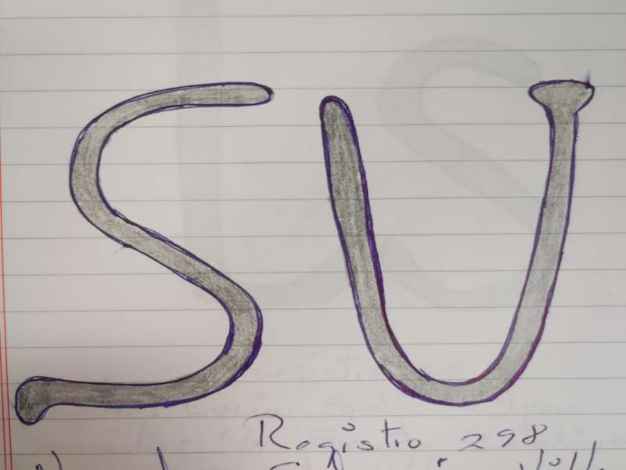 SU
Registro 298